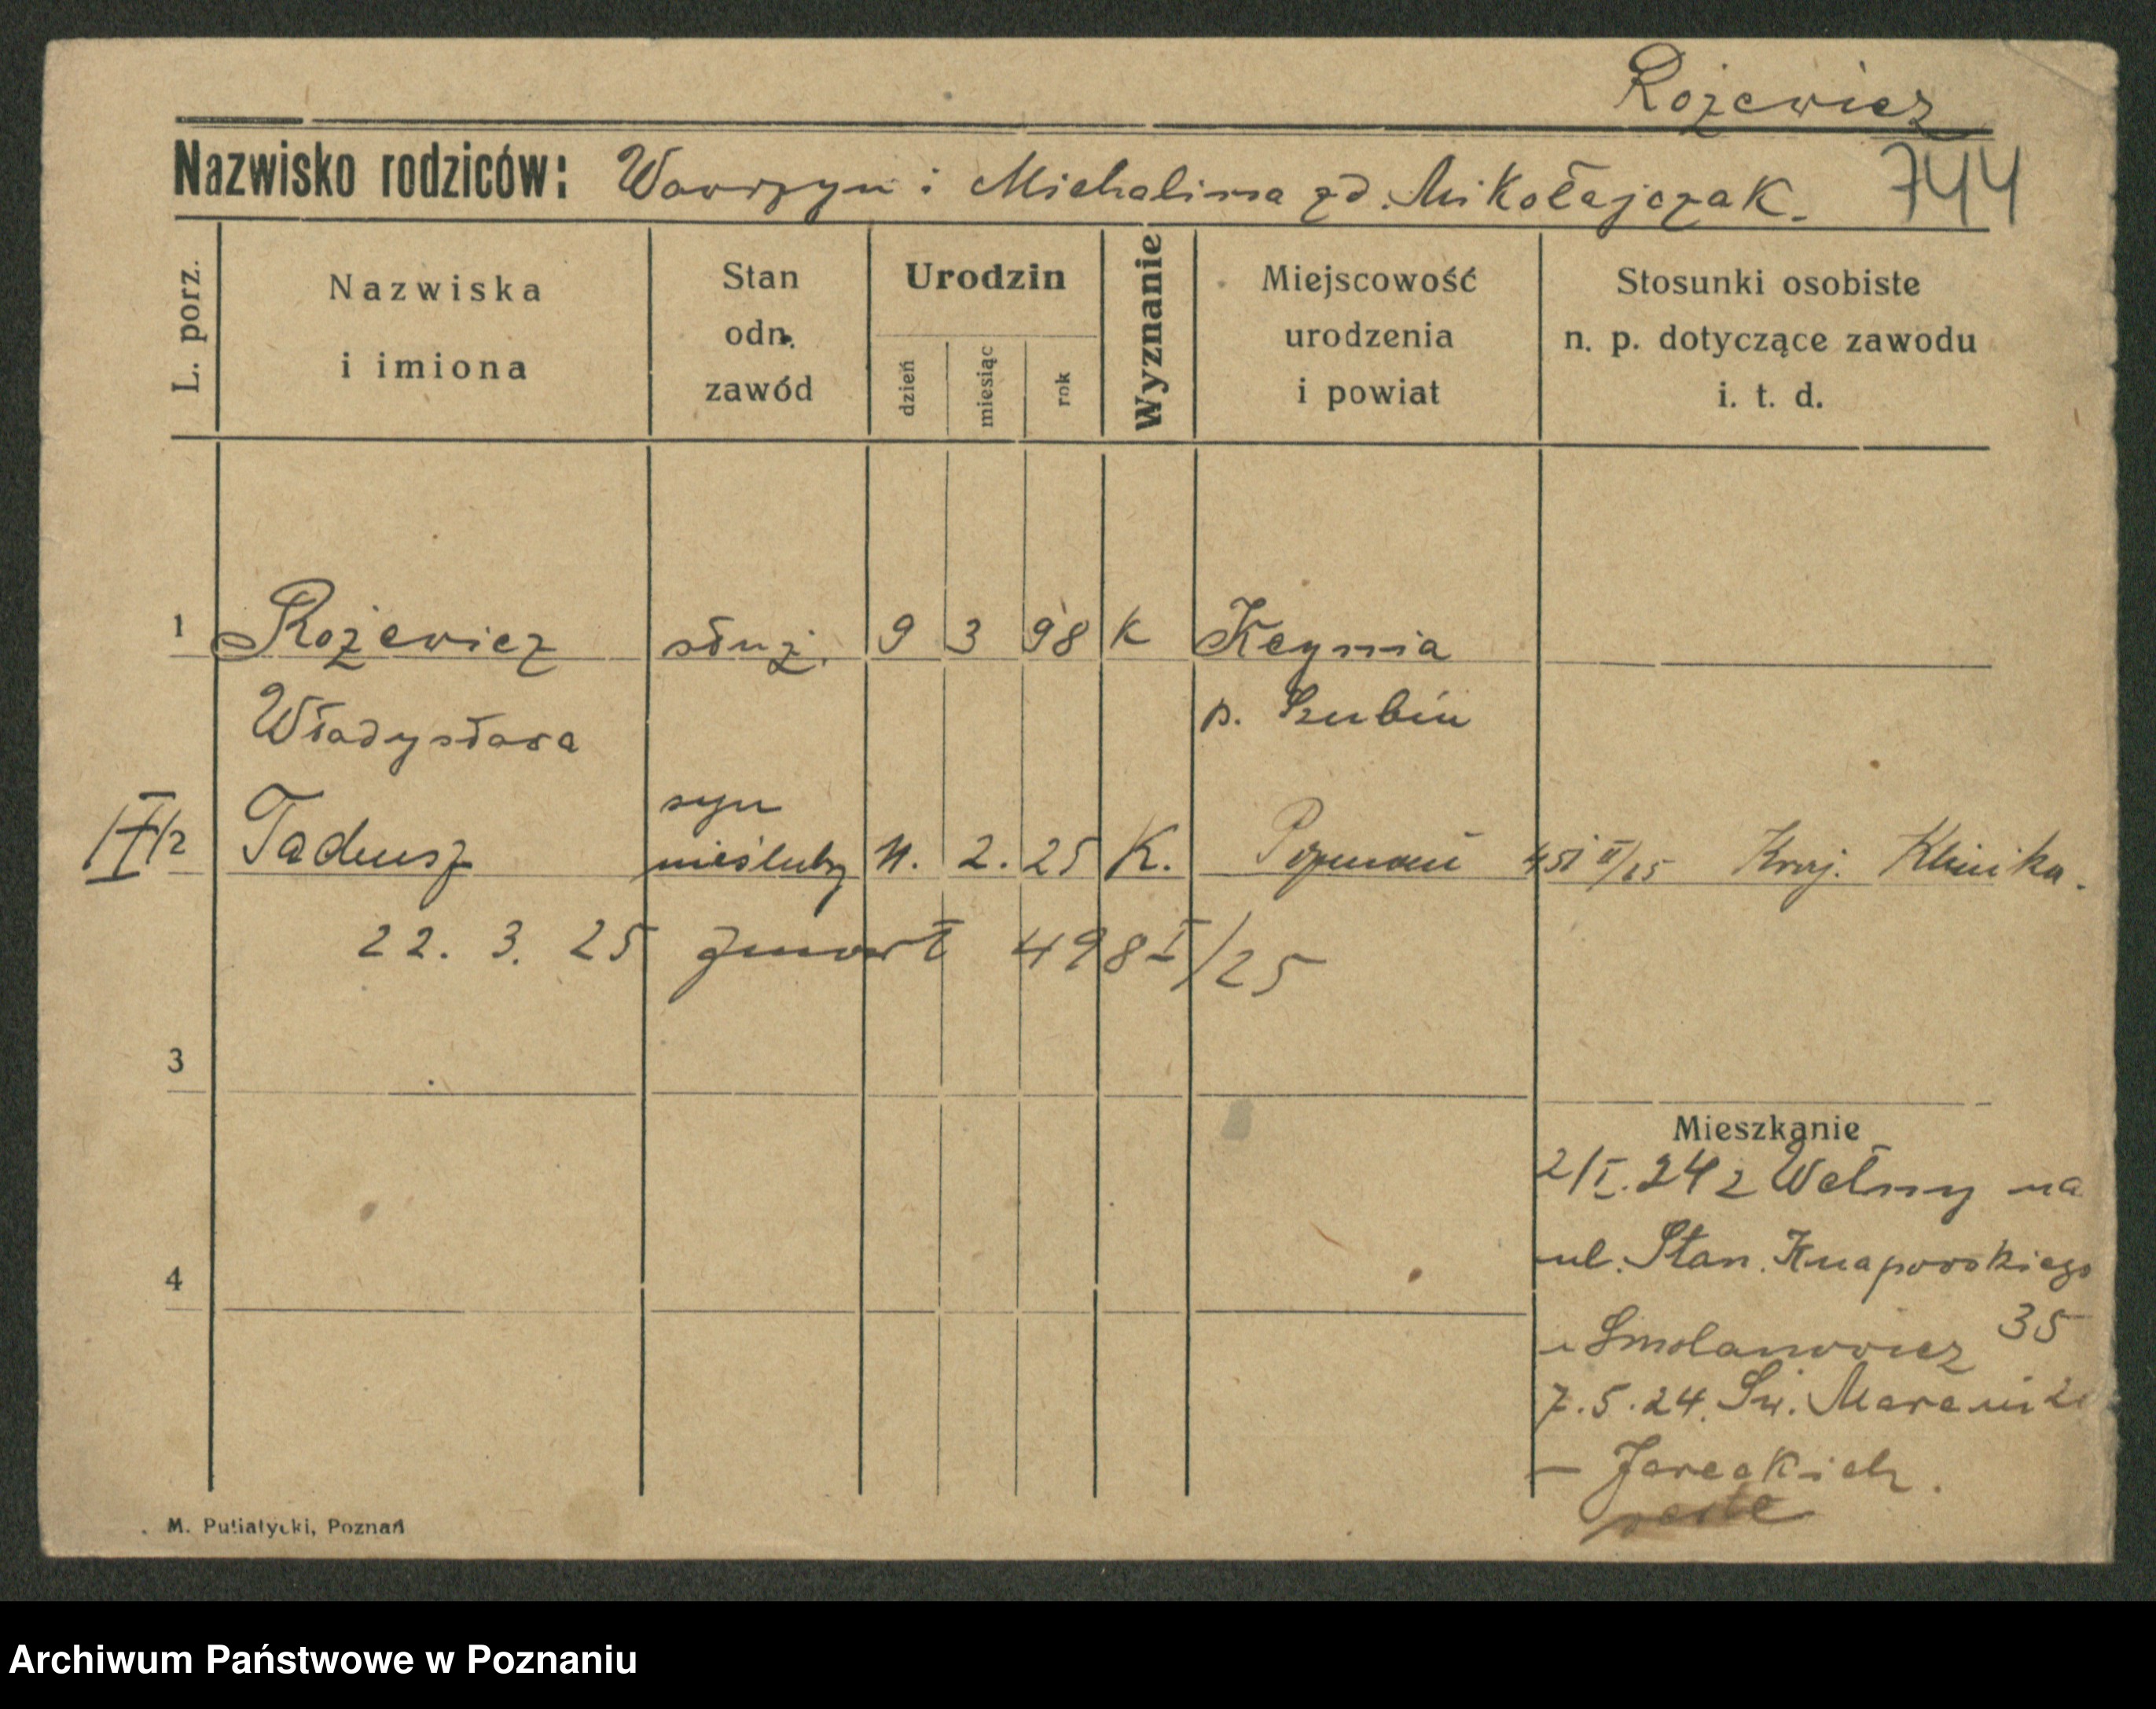 Rożewicz
Nazwisko rodziców: Wawrzyn i Michalina zd. Mikołajczak. 744
L. porz.
Nazwiska i imiona
Stan odn. zawód
Urodzin
dzień miesiąc rok
Wyznanie
Miejscowość urodzenia i powiat
Stosunki osobiste n. p. dotyczące zawodu i. t. d.
1 Rożewicz służ. 9 3 98 K Kcynia
Władysława p. Szubin
syn
2 Tadeusz nieślubny 11. 2. 25 K. Poznań 451 II/25 Kraj. Klinika.
22. 3. 25 zmarł 498 I/25
3
Mieszkanie
2/I. 24 z Wełny na
4
ul. Stan. Knapowskiego
35
u Smolanowicz
7.5.24. Św. Marcin
– Jareckich.
M. Putiatycki, Poznań
Archiwum Państwowe w Poznaniu